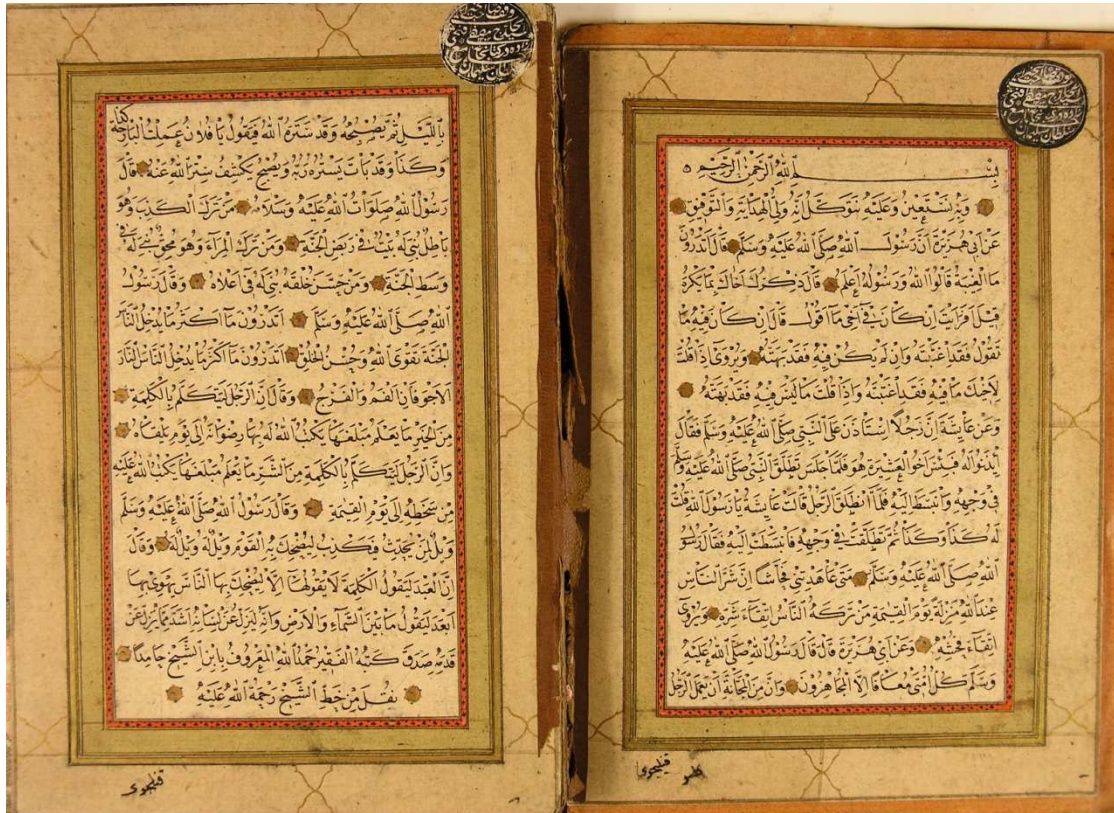 بسم الله الرحمن الرحيم
وبه نستعين وعليه نتوكل انه ولى الهداية والتوفيق
عن ابى هريرة ان رسول الله صلى الله عليه وسلم قال اتدرون
ما الغيبة قالوا الله ورسوله اعلم قال ذكرك اخاك بما يكره
قيل افرايت ان كان فى اخى ما اقول قال ان كان فيه ما
تقول فقد اغتبته وان لم يكن فيه فقد بهته ويروى اذا قلت
لاخيك ما فيه فقد اغتبته واذا قلت ما ليس فيه فقد بهته
وعن عايشة ان رجلا استاذن على النبى صلى الله عليه وسلم فقال
ايذنوا له فبئس اخو العشيرة هو فلما جلس تطلق النبى صلى الله عليه وسلم
فى وجهه وانبسط اليه فلما انطلق الرجل قالت عايشه يا رسول الله قلت
له كذا وكذا ثم تطلقت فى وجهه وانبسطت اليه فقال رسول
الله صلى الله عليه وسلم متى عاهدتنى فحاشا ان شر الناس
عند الله منزلة يوم القيمة من تركه الناس اتقاء شره ويروى
اتقاء فحشه وعن ابى هريرة قال قال رسول الله صلى الله عليه
وسلم كل امتى معافا الا المجاهرون وان من المجانة ان يعمل الرجل
بالليل ثم يصبحه وقد ستره الله فيقول يا فلان عملت البارحة كذا
وكذا وقد بات يستره ربه ويصبح يكشف ستر الله عنه قال
رسول الله صلوات الله عليه وسلامه من ترك الكذب وهو
باطل بنى له بيت فى ربض الجنة ومن ترك المراء وهو محق بنى له فى
وسط الجنة ومن حسن خلقه بنى له فى اعلاه وقال رسول
الله صلى الله عليه وسلم اتدرون ما اكثر ما يدخل الناس
الجنة تقوى الله وحسن الخلق اتدرون ما اكثر ما يدخل الناس النار
الاجوفان الفم والفرج وقال ان الرجل ليتكلم بالكلمة
من الخير ما يعلم مبلغها يكتب الله له بها رضوانه الى يوم يلقاه
وان الرجل ليتكلم بالكلمة من الشر ما يعلم مبلغها يكتب الله عليه
من سخطه الى يوم القيمة وقال رسول الله صلى الله عليه وسلم
ويل لمن يحدث فيكذب ليضحك به القوم ويل له ويل له وقال
ان العبد ليقول الكلمة لا يقولها الا ليضحك بها الناس يهوى بها
ابعد ما بين السماء والارض وانه ليزل عن لسانه اشد مما يزل عن
قدمه صدق كتبه الفقير حمد الله المعروف بابن الشيخ حامدا
نقل من خط الشيخ رحمة الله عليه